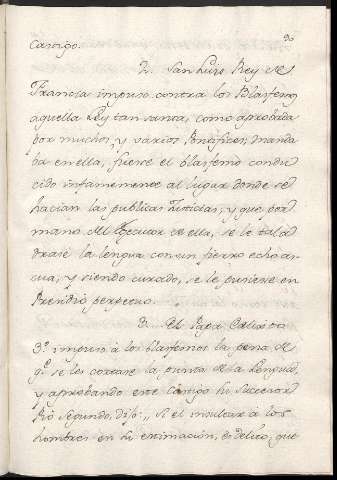 96
Castigo.
2. San Luis Rey de
Francia impuso contra los Blasfemos
aquella Ley tan santa, como aprobada
por muchos, y varios Pontifices; manda
ba en ella, fuese el blasfemo condu
cido infamemente al lugar donde se
hacian las publicas Justicias, y que por
mano del Egecutor de ella, se le tala
drase la lengua con un fierro echo as
cua, y siendo curado, se le pusiese en
Presidio perpetuo.
3. El Papa Calixto
3º impuso à los blasfemos la pena de
q.e se les cortase la punta de la Lengua,
y aprobando este castigo su Succesor
Pio segundo, dijo: Si el insultar a los
hombres en su estimación, es delito, que